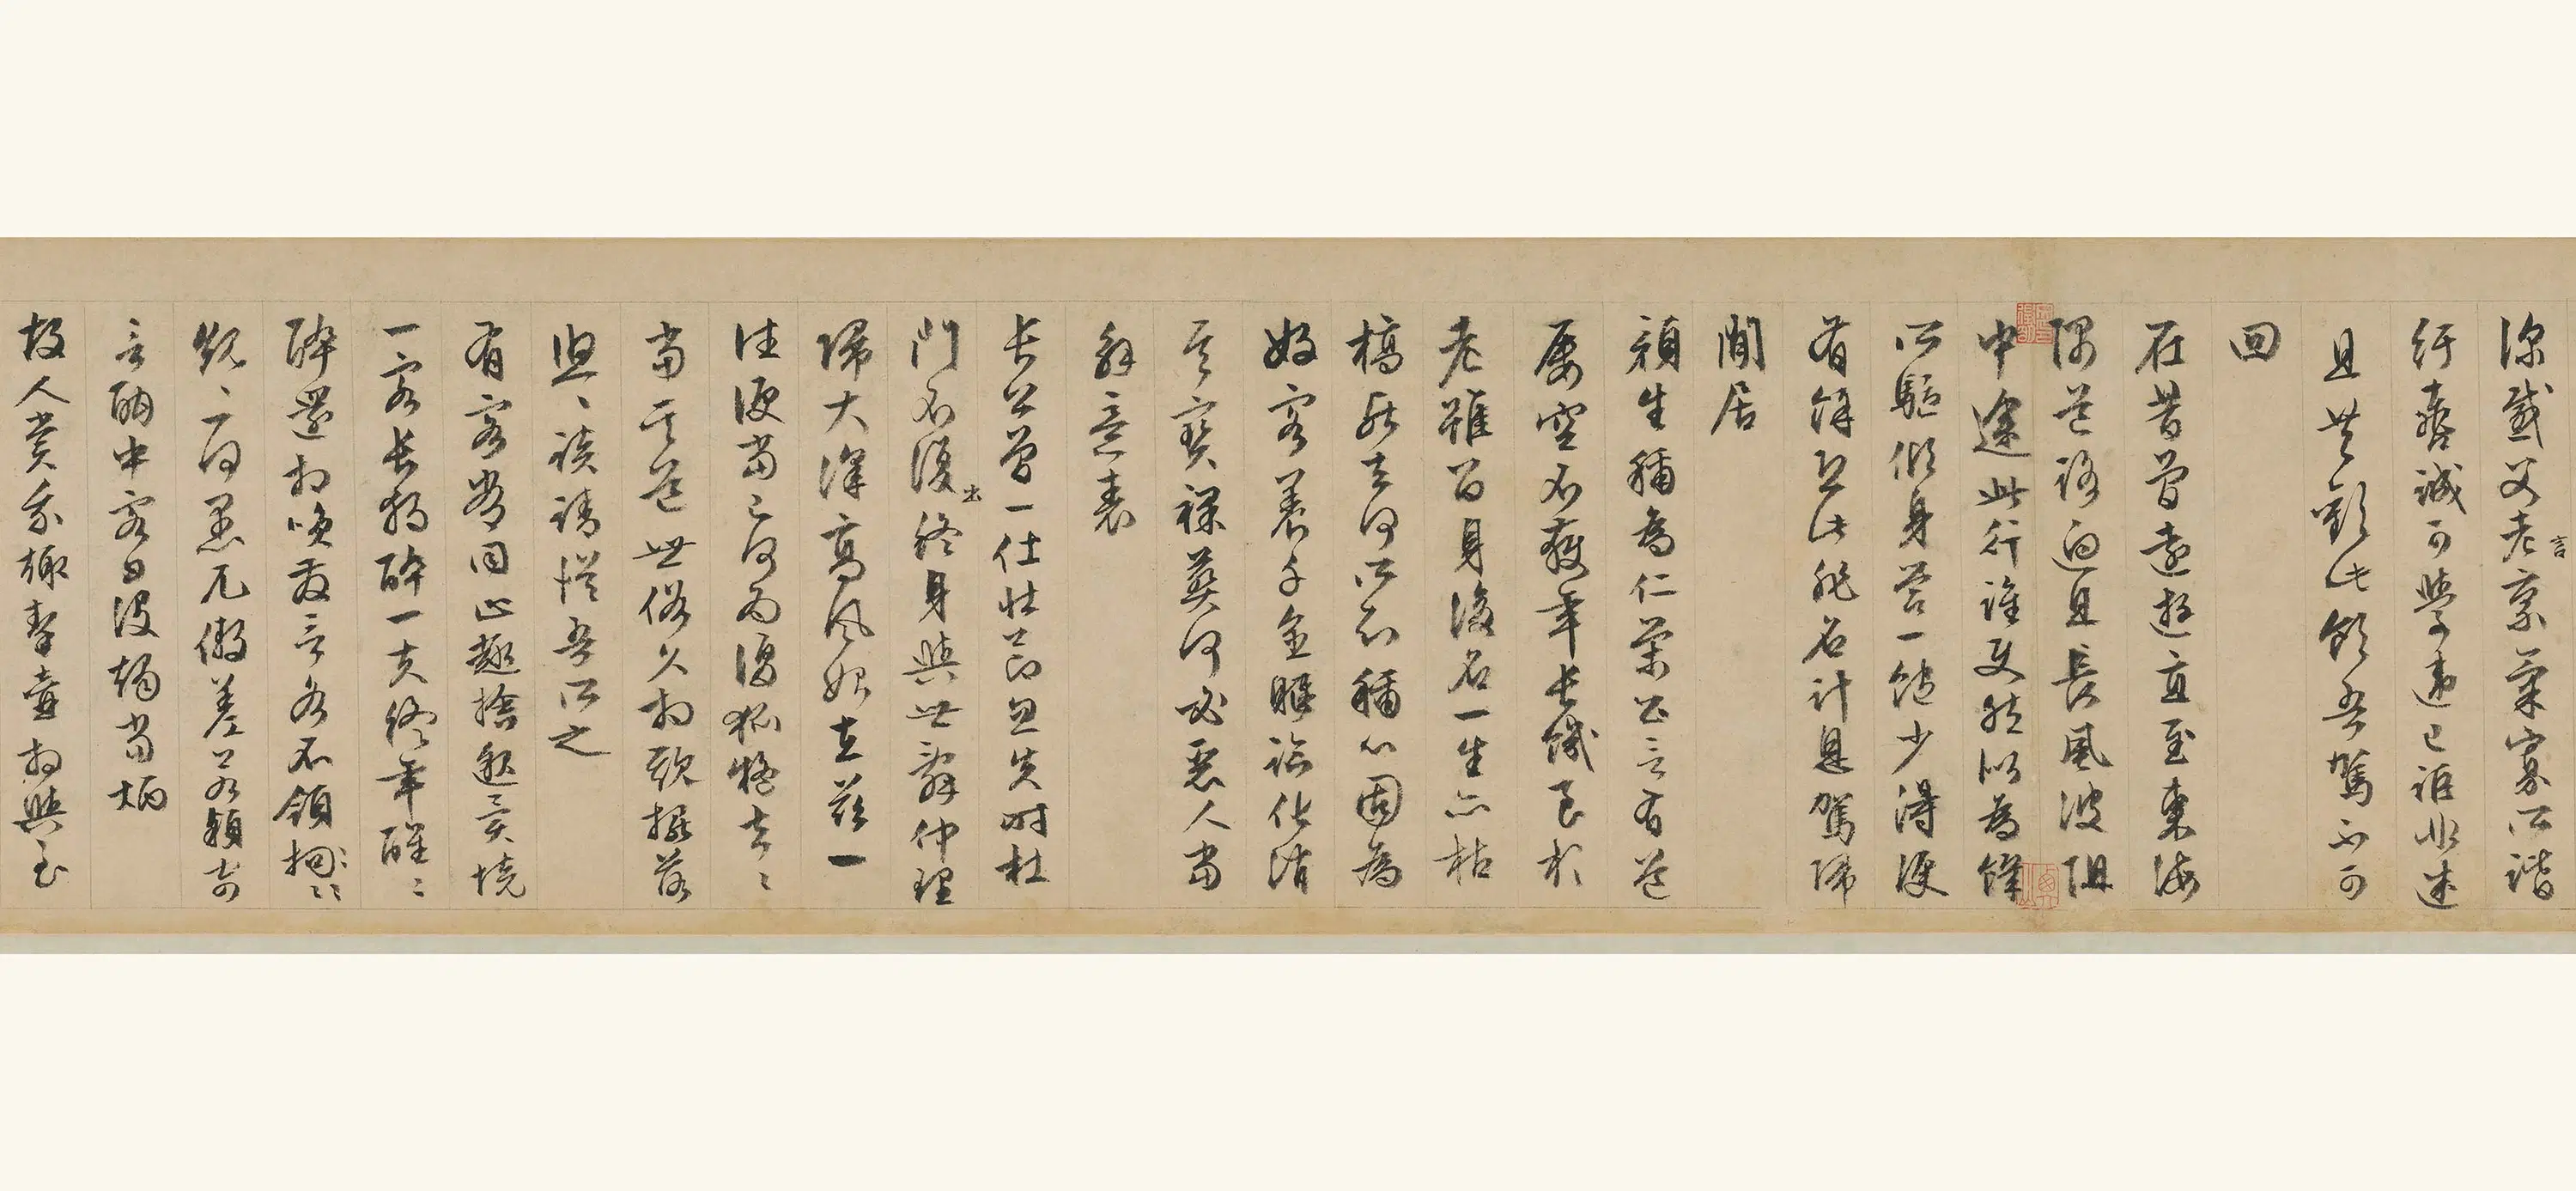 深感父老言稟氣寡所諧
紆轡誠可學違己詎非迷
且共歡此飲吾駕不可
回
在昔曾遠遊直至東海
隅道路迥且長風波阻
中途此行誰使然似為飢
所驅傾身營一飽少得便
有餘恐此非名計息駕歸
閒居
顏生稱為仁榮公言有道
屢空不獲年長飢至於
老雖留身後名一生亦枯
槁死去何所知稱心固為
好客養千金軀臨化消
其寶裸葬何必惡人當
解意表
長公曾一仕壯節忽失時杜
門不復出終身與世辭仲理
歸大澤高風始在茲一
往便當已何為復狐疑去〻
當其道世俗久相欺擺落
悠〻談請從吾所之
有客常同止趣捨邈異境
一客長獨醉一夫終年醒〻
醉還相咲發言各不領
規〻一何愚兀傲差若穎寄
言酣中客日沒燭當炳
故人賞我趣挈壺相與至